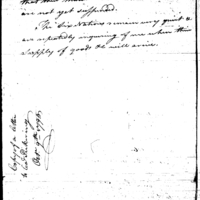 are not yet suppressed.
The Six Nations remain very quiet &
are repeatedly inquiring of me when their
supply of goods &c will arrive.
Copy of a letter
to Col. Pickering
Oct. 9th 1794